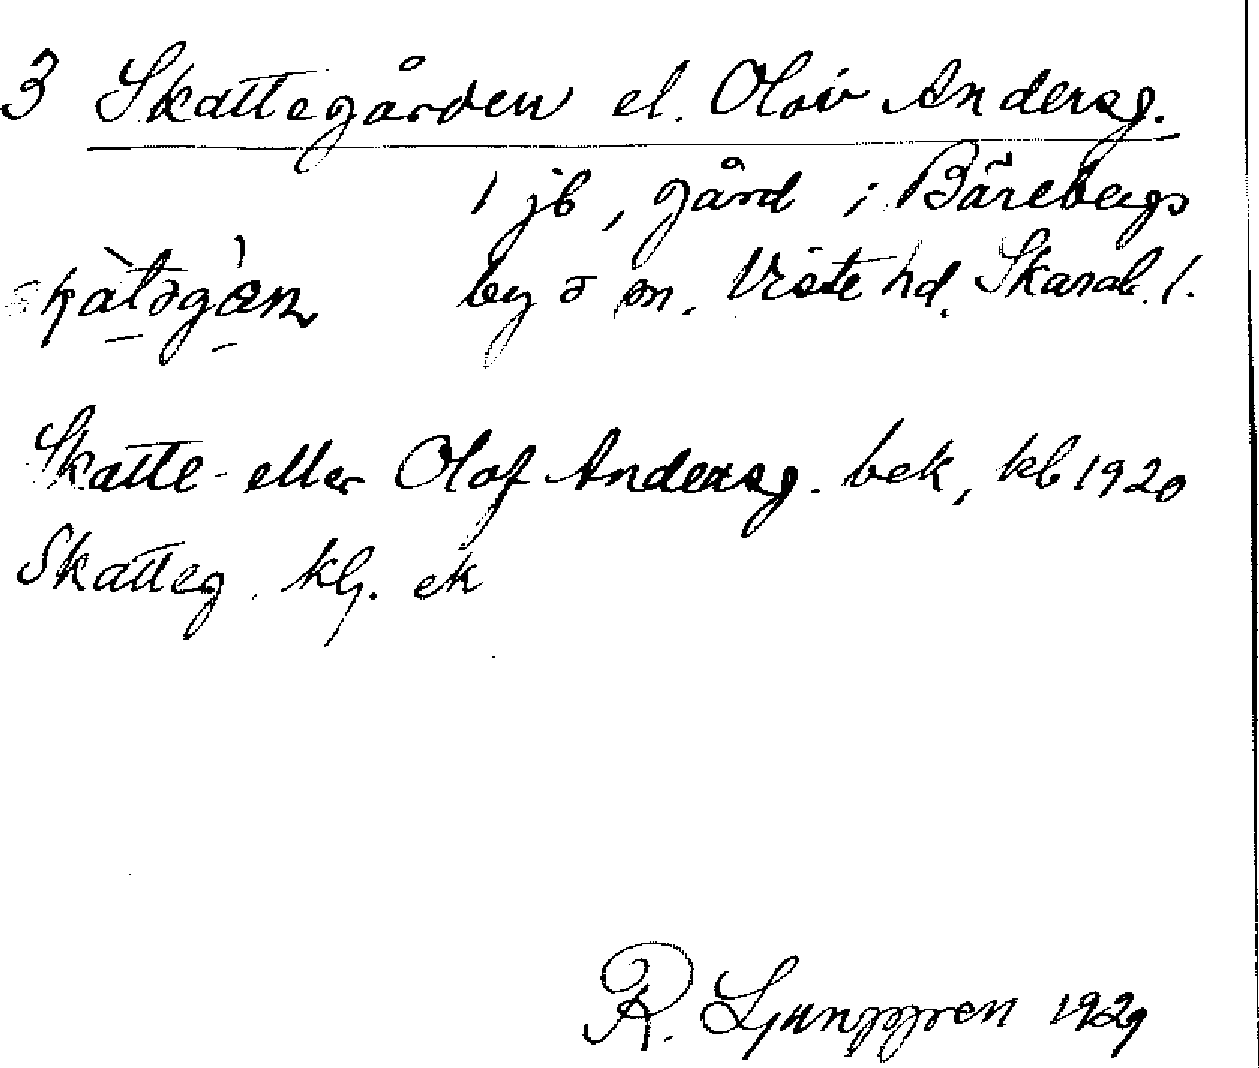 3 Skattegården el. Olov Andersg.
1 jb, gård i Bärebergs
skàtəgàɳ by o sn. Viste hd. Skarab. l.
Skatte- eller Olof Andersg. bek, kb 1920
Skatteg. klj. ek
R. Ljunggren 1929